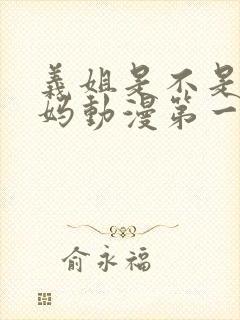 義姐是不是
妈動漫第一
俞永福